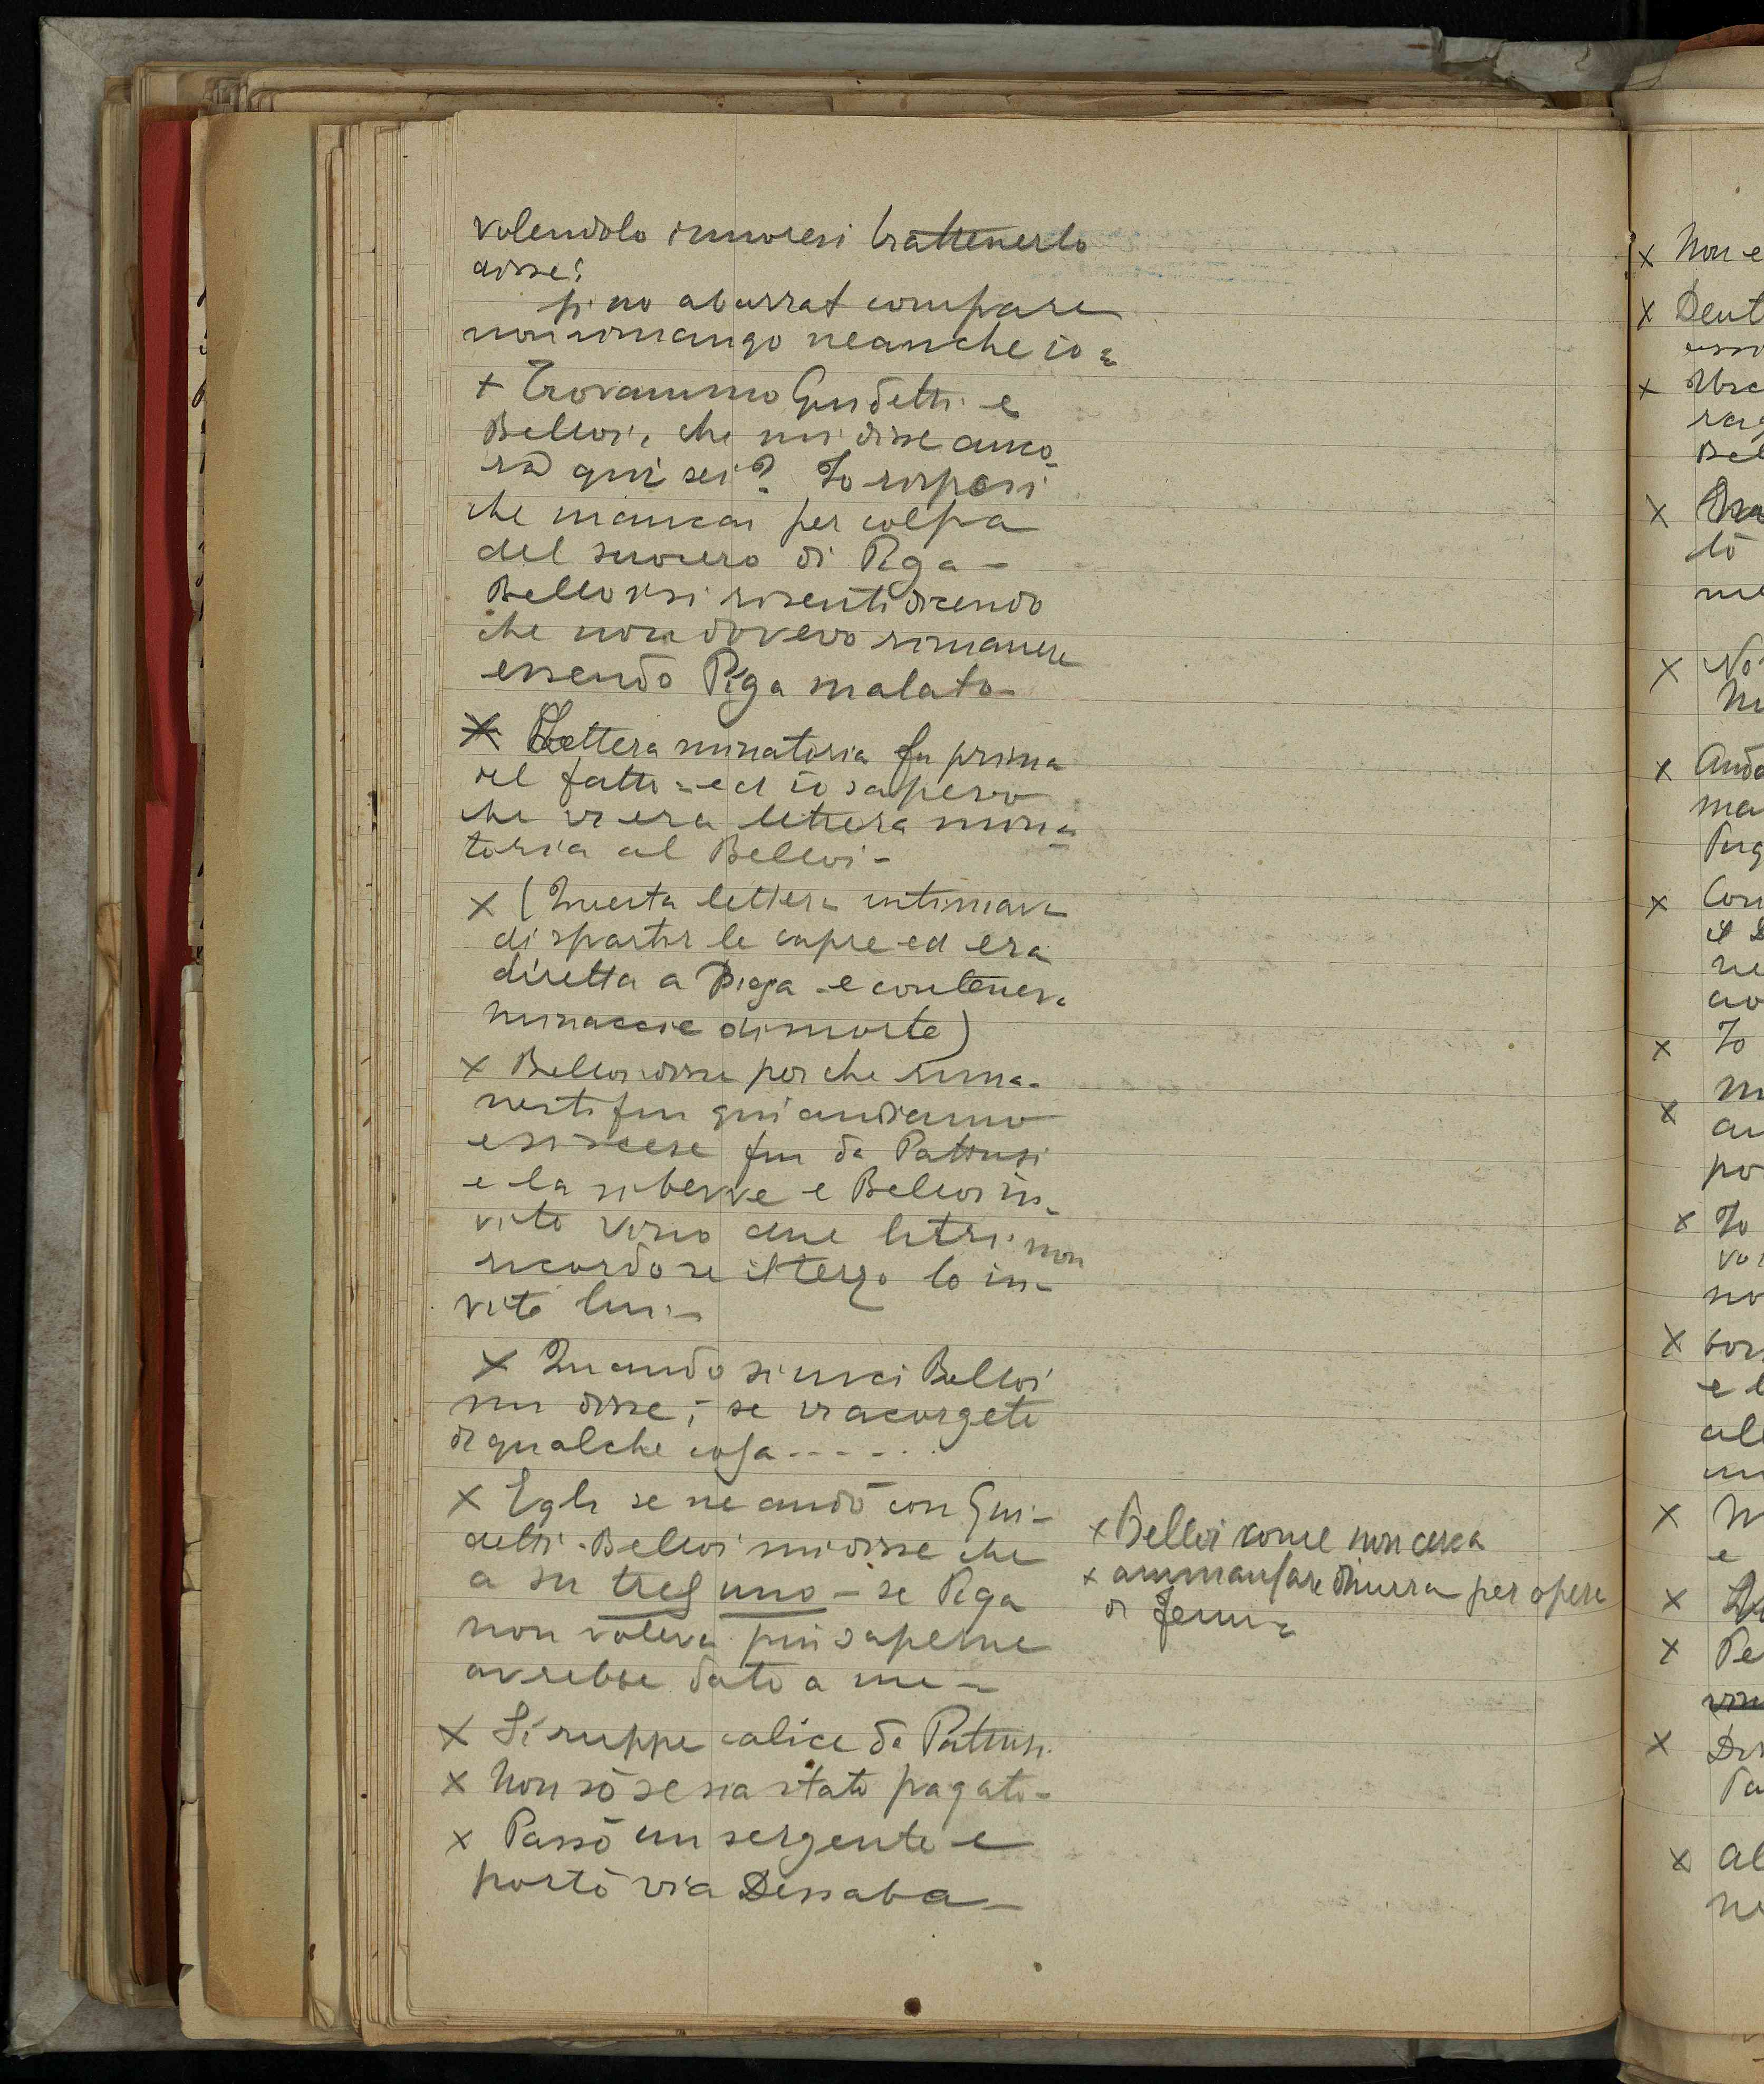 volendolo i nuoresi trattenerlo
disse:
si no aburrat compare
non rimango neanche io =
+ Trovammo Guidetti e
Belloi, che mi disse anco-
ra qui sei? Io risposi
che mancai per colpa
del suocero di Piga -
Belloi si risentì dicendo
che non dovevo rimanere
essendo Piga malato -
X Lettera minatoria fu prima
del fatto = ed io sapevo
che vi era lettera mina=
toria al Belloi -
X (Questa lettera intimava
di spartir le capre ed era
diretta a Piga - e conteneva
minaccie di morte)
X Belloi disse perche rima-
nesti fin qui andiamo
e si scese fin da Pattusi
e la si bevve e Belloi in-
vitò vino due litri. non
ricordo se il terzo lo in-
vitò lui -
X Quando si uscì Belloi
mi disse; - se vi acorgete
di qualche cosa - - - - -
X Egli se ne andò con Gui-
detti - Belloi mi disse che
a su tres uno - se Piga
non voleva più saperne
avrebbe dato a me -
X Si ruppe calice da Pattusi.
X Non sò se sia stato pagato -
X Passò un sergente e
portò via Dessaba -
x Belloi come non cerca
x per opera
di
x Non e
x
x
x
lò
x No
x
ma
x Con
x Io
x
po
x Io
no
x
e
x
e
x
x Pe
x
x al
ne